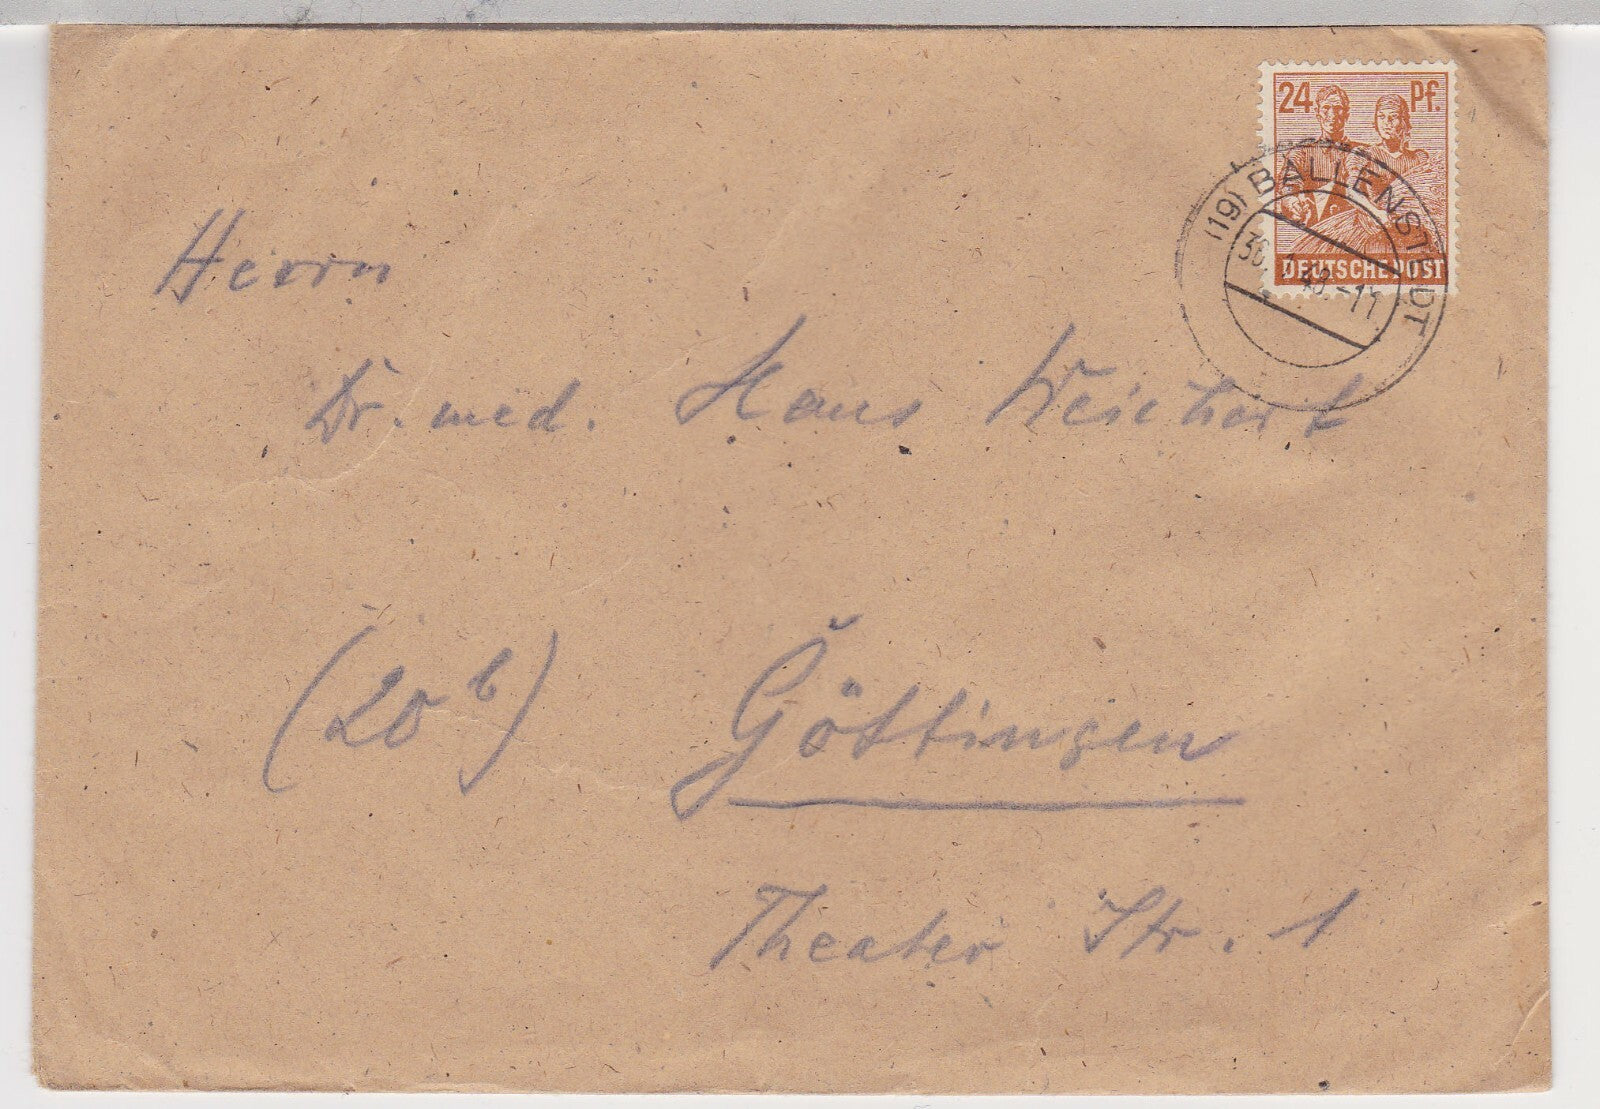 24 Pf.
(19) BALLENSTEDT
48.-11
DEUTSCHE POST
Herrn
Dr. med. Hans Weichart
(20b) Göttingen
Theater Str. 1